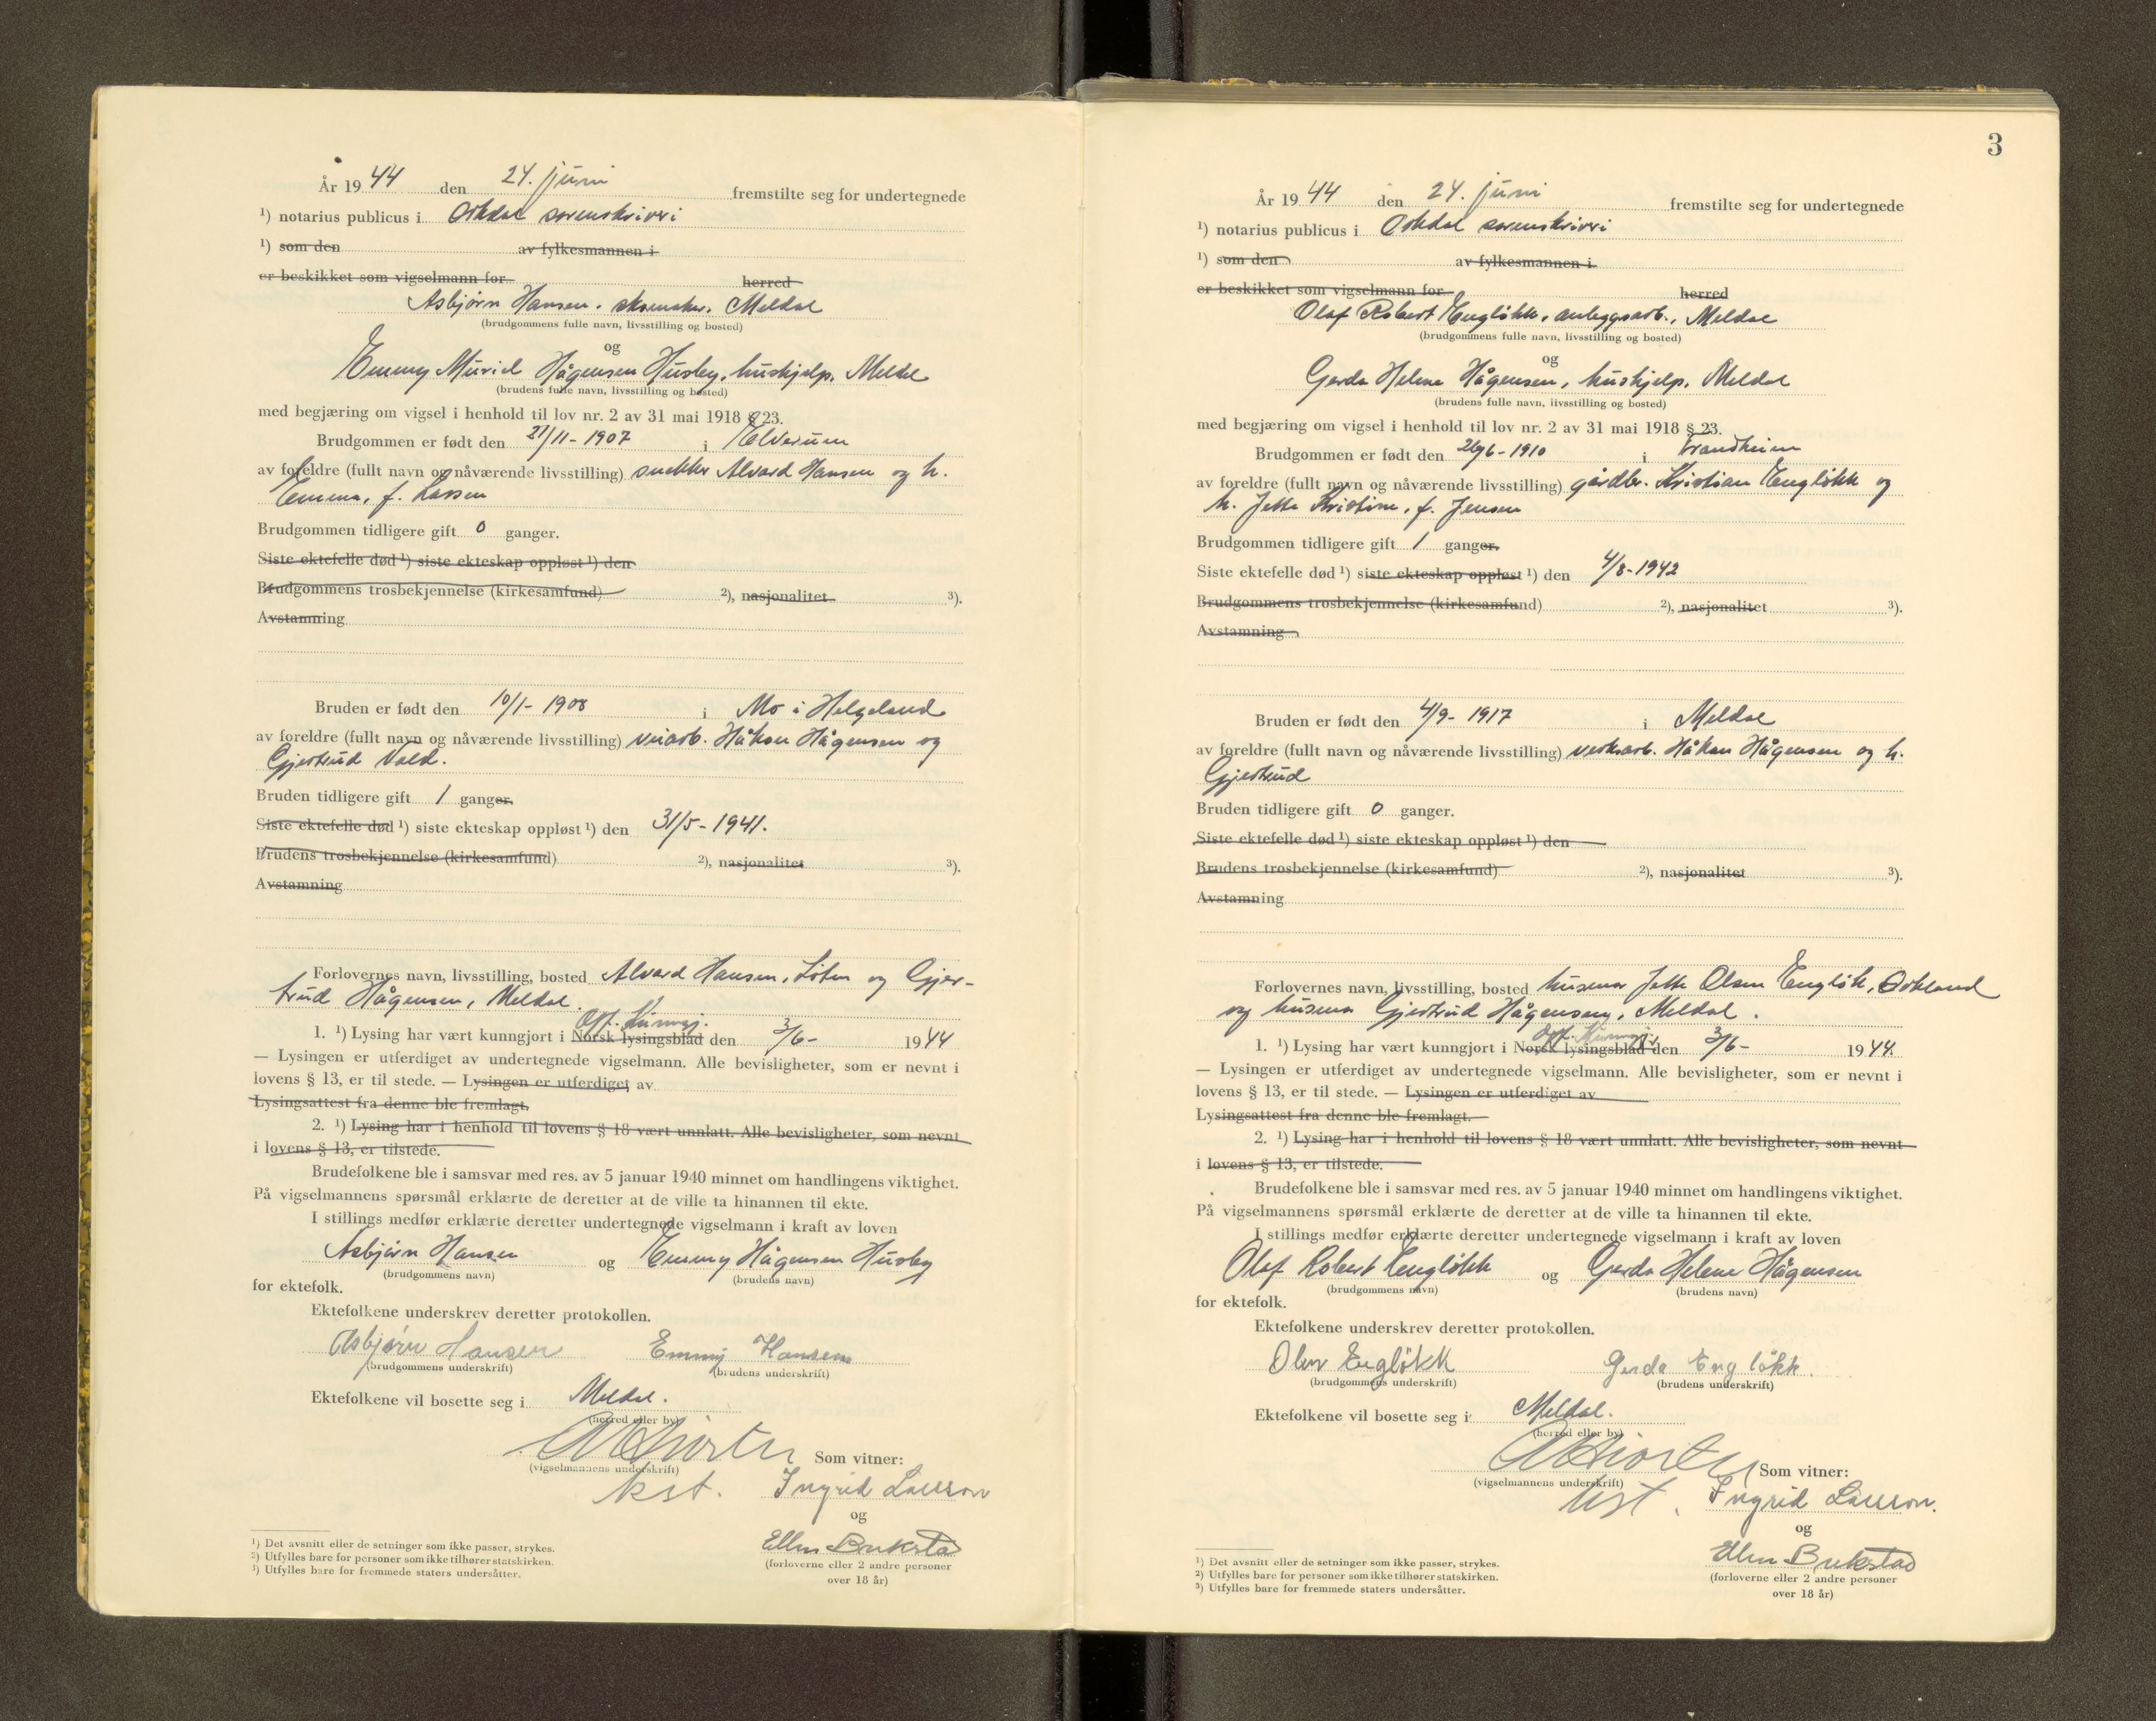 År 19 44 den 24. juni fremstilte seg for undertegnede
¹) notarius publicus i Orkdal sorenskriveri
¹) som den av fylkesmannen i
er beskikket som vigselmann for herred
Asbjørn Hansen. skomaker. Meldal
(brudgommens fulle navn, livsstilling og bosted)
og
Emmy Muriel Hågensen Husby, hushjelp. Meldal
(brudens fulle navn, livsstilling og bosted)
med begjæring om vigsel i henhold til lov nr. 2 av 31 mai 1918 § 23.
Brudgommen er født den 21/11 - 1907 i Elverum
av foreldre (fullt navn og nåværende livsstilling) snekker Alvard Hansen og h.
Emma, f. Larsen
Brudgommen tidligere gift 0 ganger.
Siste ektefelle død ¹) siste ekteskap oppløst ¹) den
Brudgommens trosbekjennelse (kirkesamfund) ²), nasjonalitet ³).
Avstamning
Bruden er født den 10/1 - 1908 i Mo i Helgeland
av foreldre (fullt navn og nåværende livsstilling) veiarb. Håkon Hågensen og
Gjertrud Vold.
Bruden tidligere gift 1 ganger.
Siste ektefelle død ¹) siste ekteskap oppløst ¹) den 31/5 - 1941.
Brudens trosbekjennelse (kirkesamfund) ²), nasjonalitet ³).
Avstamning
Forlovernes navn, livsstilling, bosted Alvard Hansen, Løten og Gjer-
trud Hågensen, Meldal.
Off. Kunngj.
1. ¹) Lysing har vært kunngjort i Norsk lysingsblad den 3/6 - 19 44
— Lysingen er utferdiget av undertegnede vigselmann. Alle bevisligheter, som er nevnt i
lovens § 13, er til stede. — Lysingen er utferdiget av
Lysingsattest fra denne ble fremlagt.
2. ¹) Lysing har i henhold til lovens § 18 vært unnlatt. Alle bevisligheter, som nevnt
i lovens § 13, er tilstede.
Brudefolkene ble i samsvar med res. av 5 januar 1940 minnet om handlingens viktighet.
På vigselmannens spørsmål erklærte de deretter at de ville ta hinannen til ekte.
I stillings medfør erklærte deretter undertegnede vigselmann i kraft av loven
Asbjørn Hansen og Emmy Hågensen Husby
(brudgommens navn) (brudens navn)
for ektefolk.
Ektefolkene underskrev deretter protokollen.
Asbjørn Hansen Emmy Hansen
(brudgommens underskrift) (brudens underskrift)
Ektefolkene vil bosette seg i Meldal.
(herred eller by)
Som vitner:
(vigselmannens underskrift)
kst. Ingrid Larson
og
Ellen Brekstad
(forloverne eller 2 andre personer
over 18 år)
¹) Det avsnitt eller de setninger som ikke passer, strykes.
²) Utfylles bare for personer som ikke tilhører statskirken.
³) Utfylles bare for fremmede staters undersåtter.
3
År 19 44 den 24. juni fremstilte seg for undertegnede
¹) notarius publicus i Orkdal sorenskriveri
¹) som den av fylkesmannen i
er beskikket som vigselmann for herred
Olaf Robert Engløkk, anleggsarb., Meldal
(brudgommens fulle navn, livsstilling og bosted)
og
Gerda Helene Hågensen, hushjelp. Meldal
(brudens fulle navn, livsstilling og bosted)
med begjæring om vigsel i henhold til lov nr. 2 av 31 mai 1918 § 23.
Brudgommen er født den 26/6 - 1910 i Trondheim
av foreldre (fullt navn og nåværende livsstilling) gårdbr. Kristian Engløkk og
h. Jette Kristine, f. Jensen
Brudgommen tidligere gift 1 ganger.
Siste ektefelle død ¹) siste ekteskap oppløst ¹) den 4/8 - 1942
Brudgommens trosbekjennelse (kirkesamfund) ²), nasjonalitet ³).
Avstamning
Bruden er født den 4/9 - 1917 i Meldal
av foreldre (fullt navn og nåværende livsstilling) verksarb. Håkon Hågensen og h.
Gjertrud
Bruden tidligere gift 0 ganger.
Siste ektefelle død ¹) siste ekteskap oppløst ¹) den
Brudens trosbekjennelse (kirkesamfund) ²), nasjonalitet ³).
Avstamning
Forlovernes navn, livsstilling, bosted husmor Jette Olsen Engløk, Orkland
og husmor Gjertrud Hågensen, Meldal.
Off. Kunngj.
1. ¹) Lysing har vært kunngjort i Norsk lysingsblad den 3/6 - 19 44.
— Lysingen er utferdiget av undertegnede vigselmann. Alle bevisligheter, som er nevnt i
lovens § 13, er til stede. — Lysingen er utferdiget av
Lysingsattest fra denne ble fremlagt.
2. ¹) Lysing har i henhold til lovens § 18 vært unnlatt. Alle bevisligheter, som nevnt
i lovens § 13, er tilstede.
Brudefolkene ble i samsvar med res. av 5 januar 1940 minnet om handlingens viktighet.
På vigselmannens spørsmål erklærte de deretter at de ville ta hinannen til ekte.
I stillings medfør erklærte deretter undertegnede vigselmann i kraft av loven
Olaf Robert Engløkk og Gerda Helene Hågensen
(brudgommens navn) (brudens navn)
for ektefolk.
Ektefolkene underskrev deretter protokollen.
Olav Engløkk Gerda Engløkk.
(brudgommens underskrift) (brudens underskrift)
Ektefolkene vil bosette seg i Meldal.
(herred eller by)
Som vitner:
(vigselmannens underskrift)
kst. Ingrid Larson.
og
Ellen Brekstad
(forloverne eller 2 andre personer
over 18 år)
¹) Det avsnitt eller de setninger som ikke passer, strykes.
²) Utfylles bare for personer som ikke tilhører statskirken.
³) Utfylles bare for fremmede staters undersåtter.